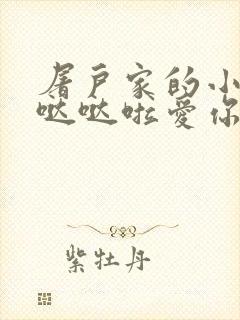 屠户家的小
哒哒啦爱你
紫牡丹